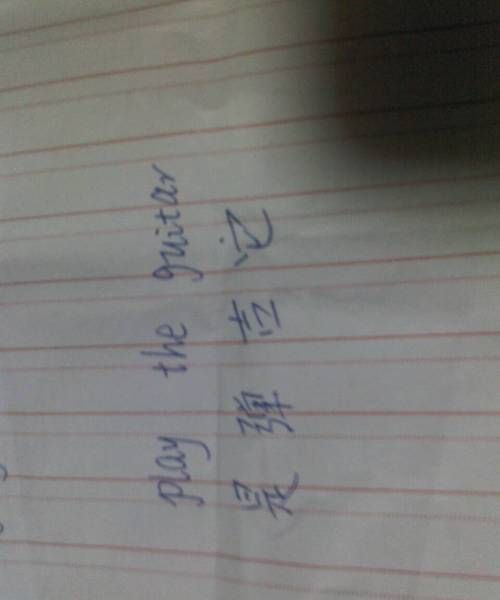 play the guitar
弹 吉 它